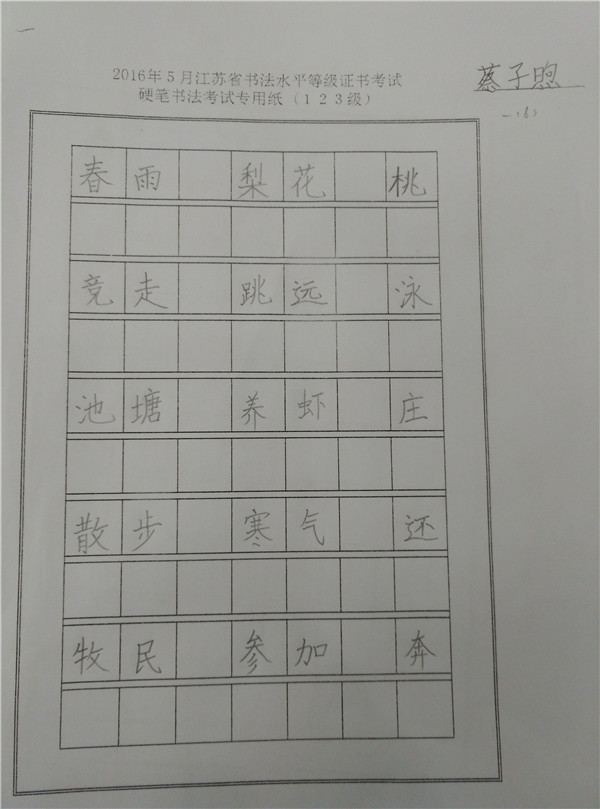 2016年5月江苏省书法水平等级证书考试
硬笔书法考试专用纸（123级）
蔡子煦
一(6)
春雨 梨花 桃
竞走 跳远 泳
池塘 养虾 庄
散步 寒气 还
牧民 参加 奔